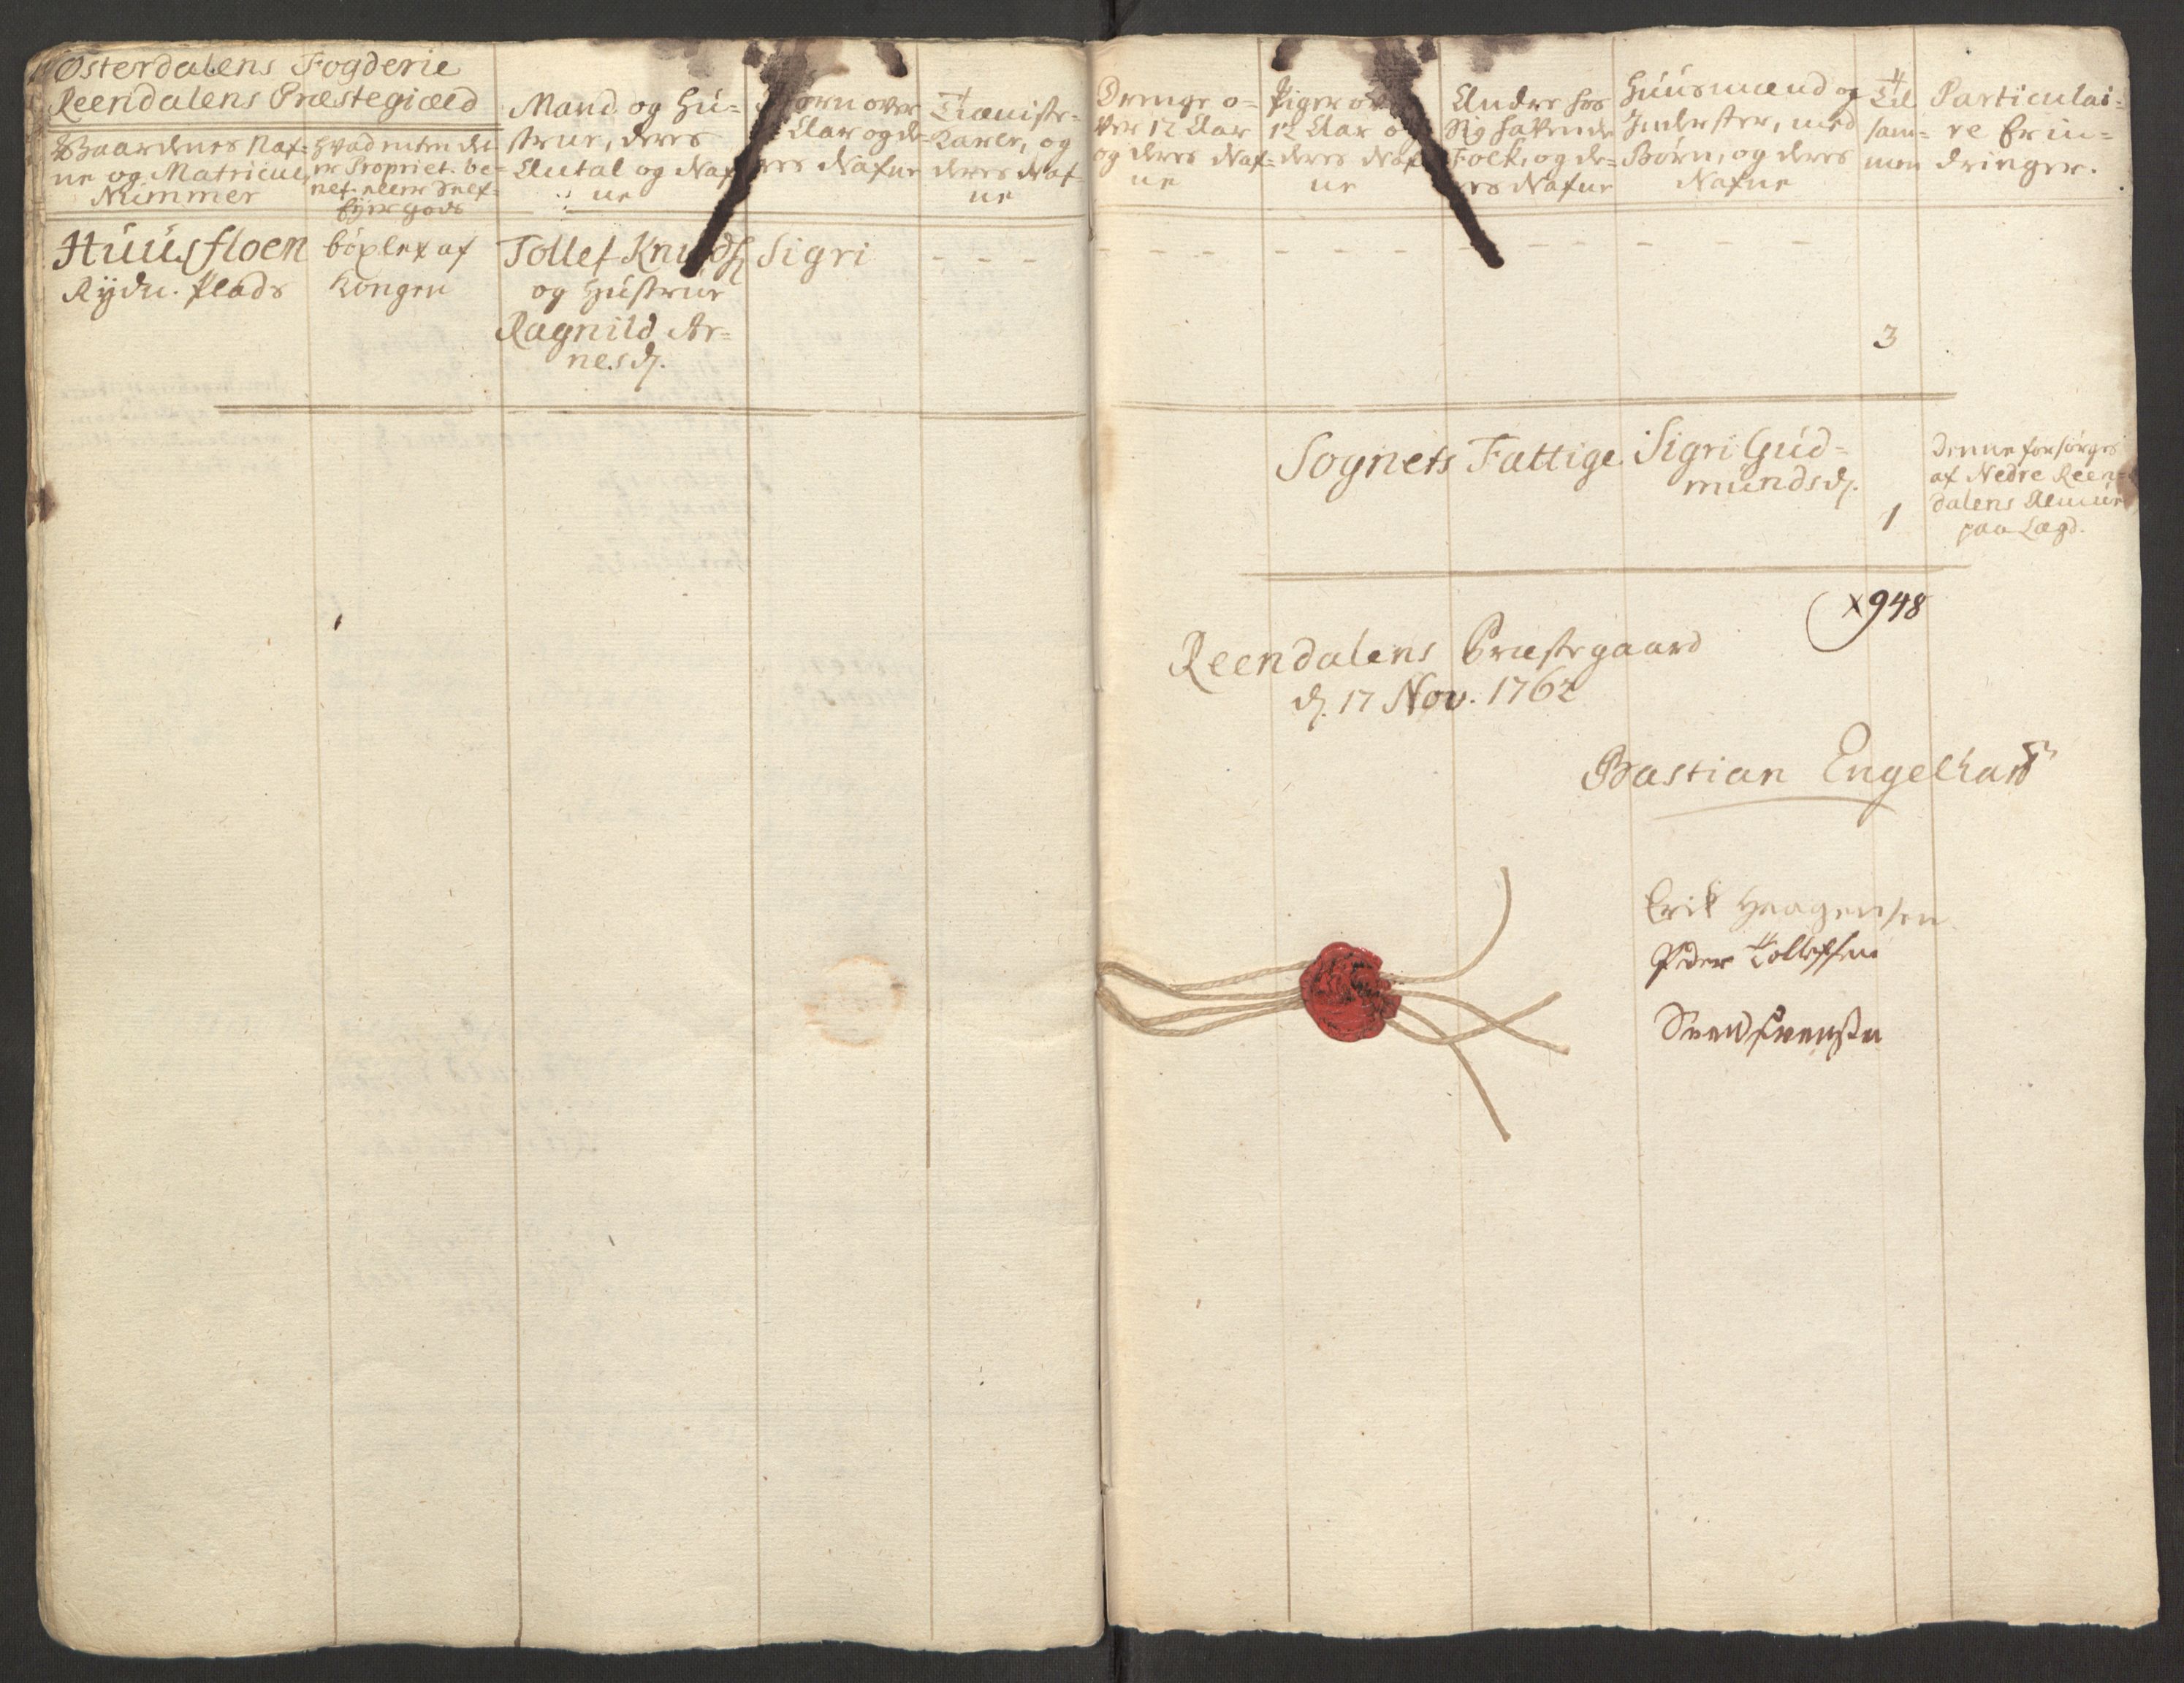 Østerdalens Fogderie
Reendalens Præstegiæld
Gaardenes Naf-
ne og Matricul
Nummer
Hvad enten det
er Propriet. be-
nef. eller Self-
Eyer gods
Mand og Hu-
strue, deres
Antal og Naf
ne
Børn over
Aar og de-
res Nafne
Tieniste-
Karle, og
deres Naf-
ne
Drenge o-
ver 12 Aar
og deres Naf-
ne
Piger over
12 Aar og
deres Naf
ne
Andre hos
sig havende
Folk, og de-
res Nafne
Huusmænd og
Inderster, med
Børn, og deres
Nafne
Til
sam-
men
Particulai-
re Erin-
dringer.
Huusfloen
Rydn. Plads
bøxlet af
Kongen
Tollef Knuds
og Hustrue
Ragnild Ar-
nesd.
Sigri
- - -
- - - - - - - - - - -
3
Sognets Fattige
Sigri Gud-
mundsd.
1
Denne forsørges
af Nedre Reen-
dalens Almue
paa Lægd.
x948
Reendalens Præstegaard
d. 17 Nov. 1762
Bastian Engelhart
Erik Haagensen
Peder Tollefsen
Svend Svensen